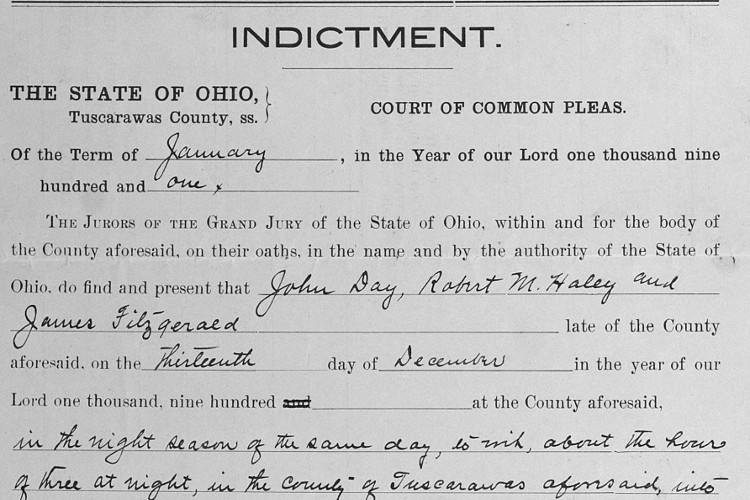 INDICTMENT.
THE STATE OF OHIO,
Tuscarawas County, ss.
COURT OF COMMON PLEAS.
Of the Term of January, in the Year of our Lord one thousand nine
hundred and one,
THE JURORS OF THE GRAND JURY of the State of Ohio, within and for the body of
the County aforesaid, on their oaths, in the name and by the authority of the State of
Ohio, do find and present that John Day, Robert M. Haley and
James Fitzgerald late of the County
aforesaid, on the thirteenth day of December in the year of our
Lord one thousand, nine hundred and at the County aforesaid,
in the night season of the same day, to wit, about the hour
of three at night, in the county of Tuscarawas aforesaid, into